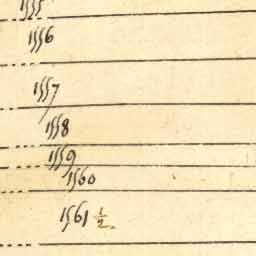 1555
1556
1557
1558
1559
1560
1561 1/2.